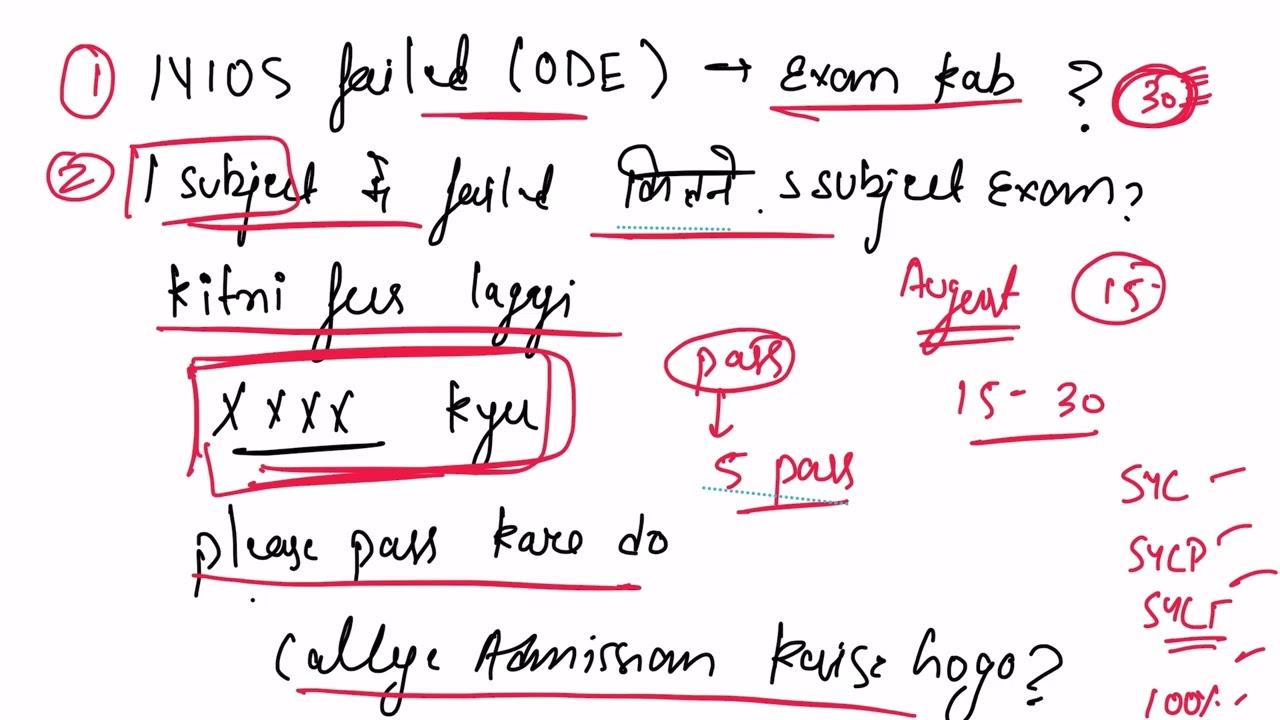 ① NIOS failed (ODE) → Exam kab ? 30
② 1 subject में failed कितने subject Exam?
kitni fees lagegi
August 15
XXXX kyu
pass
↓
5 pass
15 - 30
SYC
please pass kare do
SYCP
SYCT
Collyge Admission kaise hogo?
100%